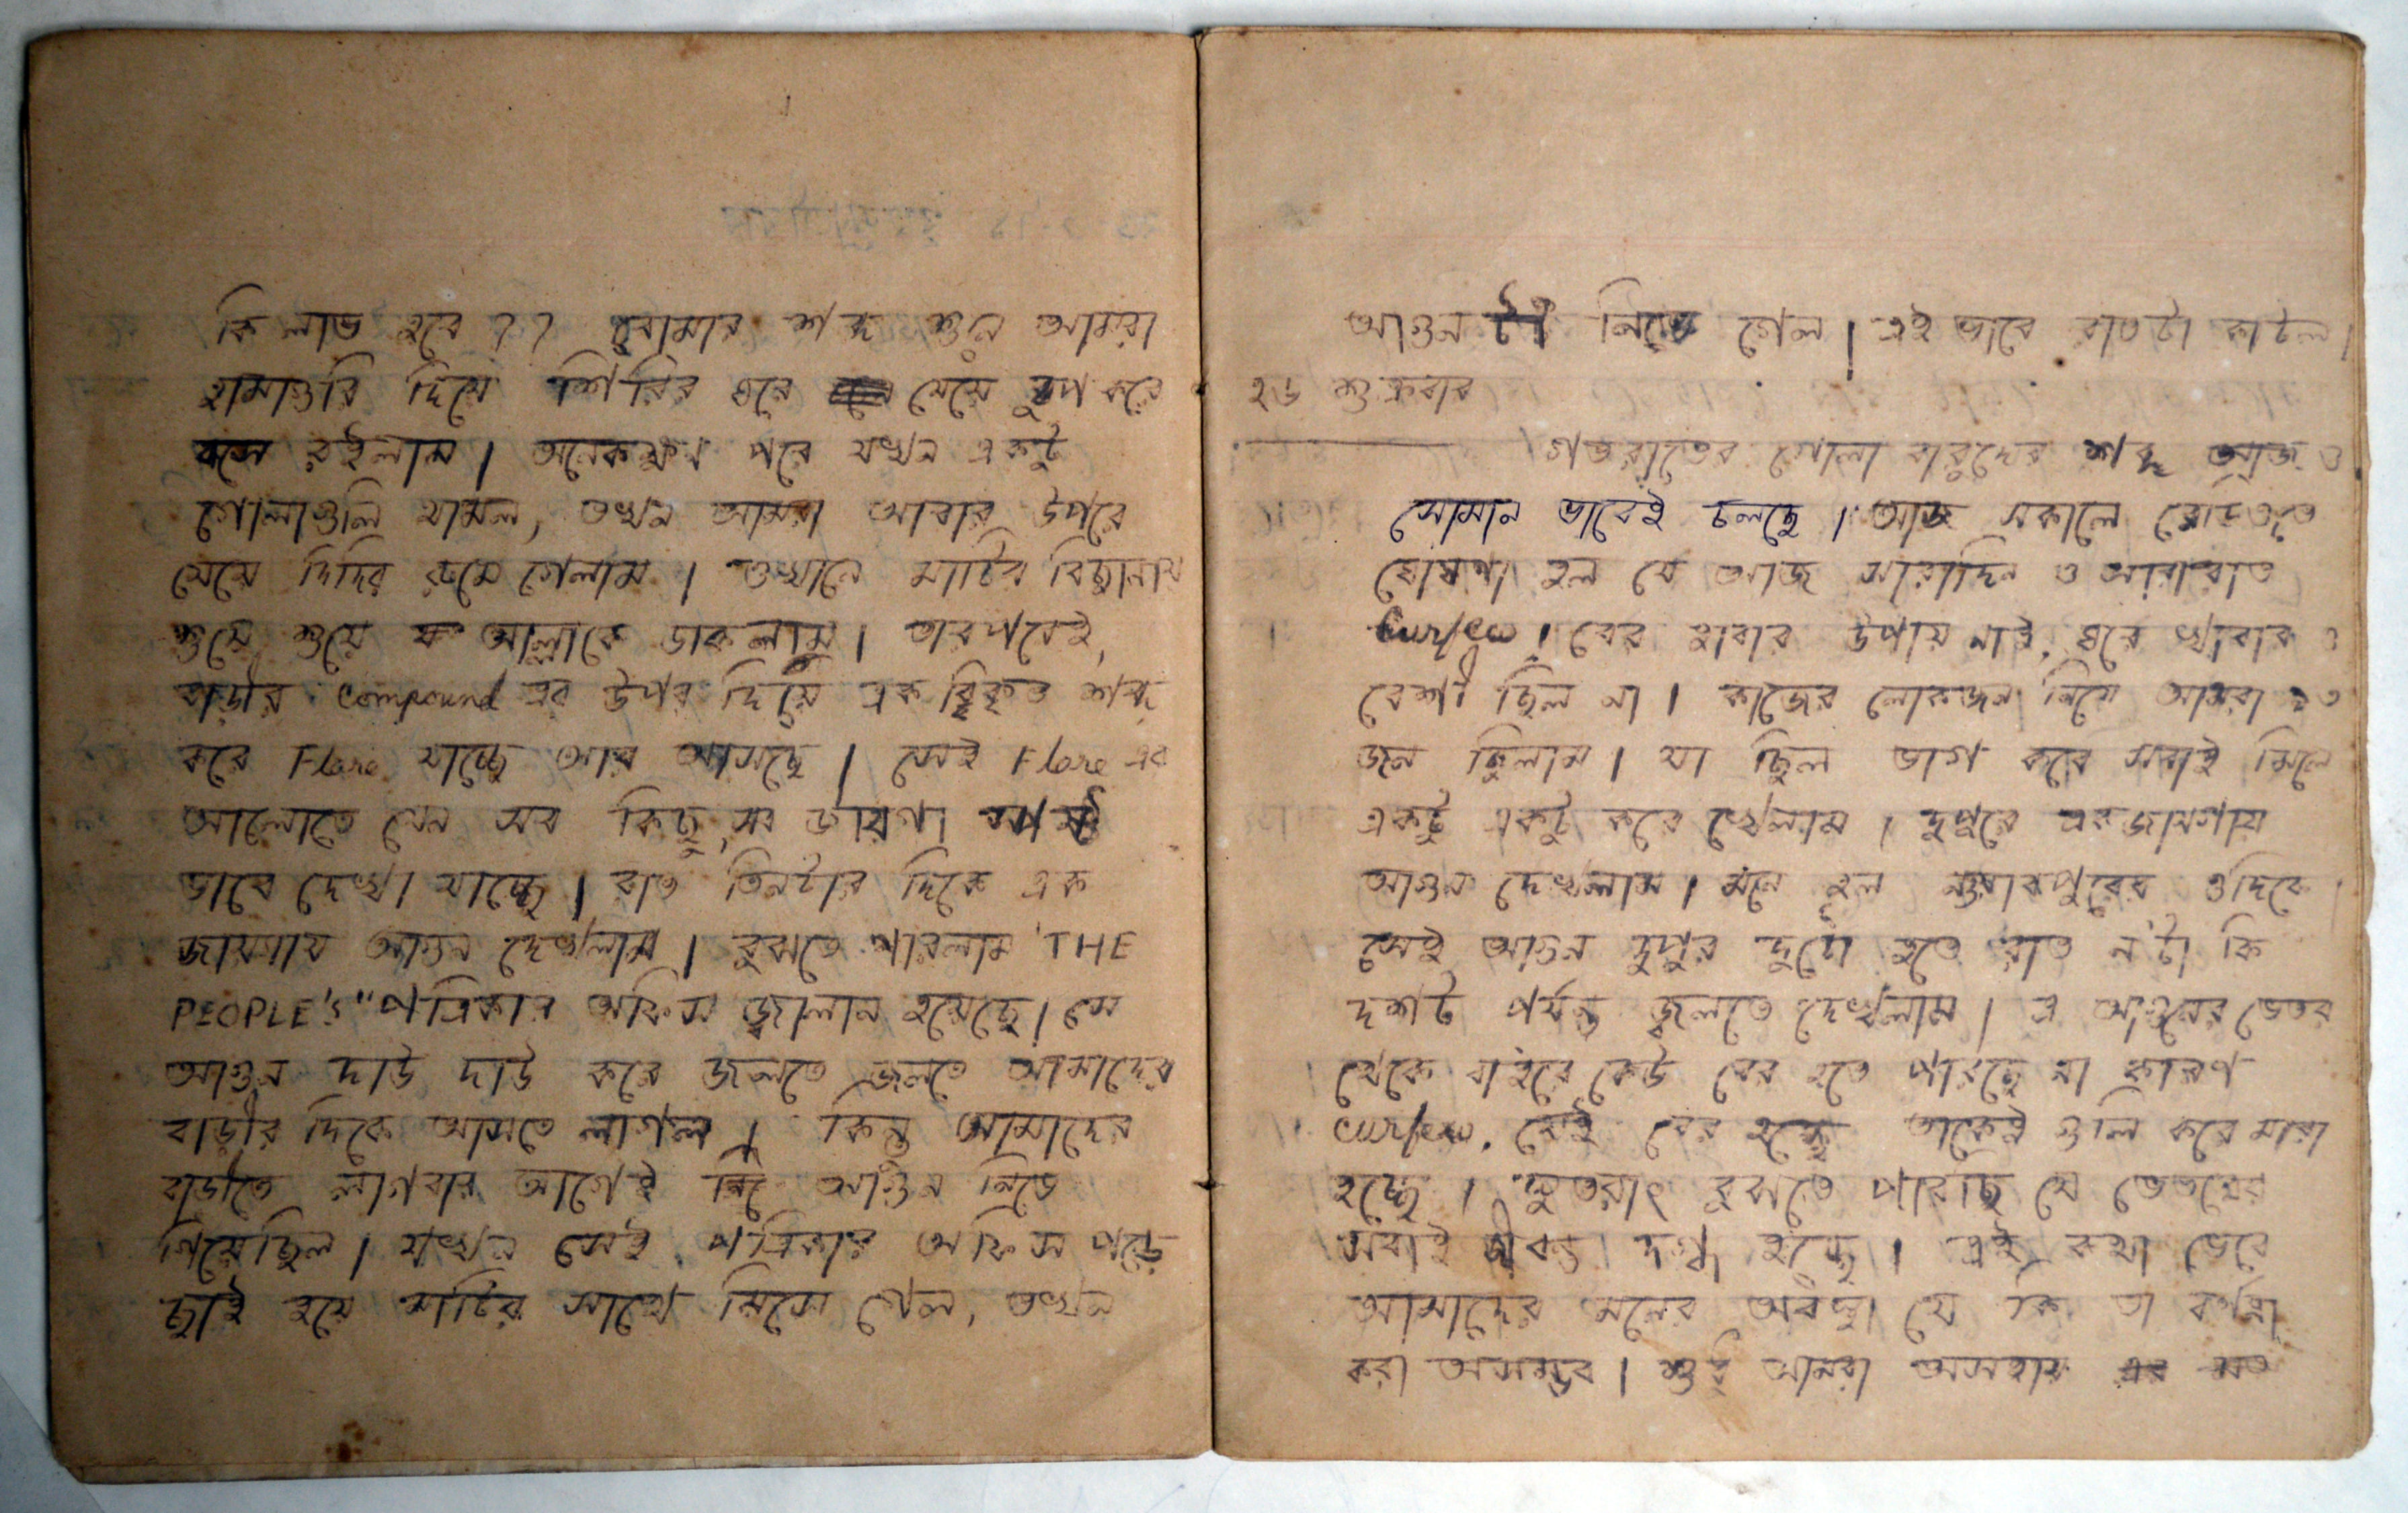 কি লাভ হবে ?? বোমার শব্দ শুনে আমরা
হামাগুরি দিয়ে শিরির ঘরে যেয়ে চুপ করে
বসে রইলাম। অনেকক্ষণ পরে যখন একটু
গোলাগুলি থামল, তখন আমরা আবার উপরে
যেয়ে দিদির রুমে গেলাম। ওখানে মাটির বিছানায়
শুয়ে শুয়ে আল্লাকে ডাকলাম। তারপরেই,
বাড়ীর Compound এর উপর দিয়ে এক বিকৃত শব্দ
করে Flare যাচ্ছে আর আসছে। সেই Flare এর
আলোতে যেন সব কিছু, সব জায়গা স্পষ্ট
ভাবে দেখা যাচ্ছে। রাত তিনটার দিকে এক
জায়গায় আগুন দেখলাম। বুঝতে পারলাম 'THE
PEOPLE'S" পত্রিকার অফিস জ্বালান হয়েছে। সে
আগুন দাউ দাউ করে জলতে জলতে আমাদের
বাড়ীর দিকে আসতে লাগল। কিন্তু আমাদের
বাড়ীতে লাগবার আগেই আগুন নিভে
গিয়েছিল। যখন সেই পত্রিকার অফিস পড়ে
ছাই হয়ে মাটির সাথে মিসে গেল, তখন
আগুন টা নিভে গেল। এই ভাবে রাতটা কাটল।
২৬ শুক্রবার
গতরাতের গোলা বারুদের শব্দ আজও
সোমান ভাবেই চলছে। আজ সকালে রেডিওতে
ঘোষণা হল যে আজ সারাদিন ও সারারাত
Curfew। বের হাবার উপায় নাই, ঘরে খাবার ও
বেশী ছিল না। কাজের লোকজন নিয়ে আমরা ১৩
জন ছিলাম। যা ছিল ভাগ করে সবাই মিলে
একটু একটু করে খেলাম। দুপুরে একজায়গায়
আগুন দেখলাম। মনে হল নওয়াবপুরের ওদিকে।
সেই আগুন দুপুর দুটো হতে রাত ন'টা কি
দশট পর্যন্ত জ্বলতে দেখলাম। এ আগুনের ভেতর
থেকে বাইরে কেউ বের হতে পারছে না কারণ
curfew. যেই বের হচ্ছে তাকেই গুলি করে মারা
হচ্ছে। সুতরাং বুঝতে পারছি যে ভেতরের
সবাই জীবন্ত দগ্ধ হচ্ছে। এই কথা ভেবে
আমাদের মনের অবস্থা যে কি তা বর্ণনা
করা অসম্ভব। শুধু আমরা অসহায় এর মত